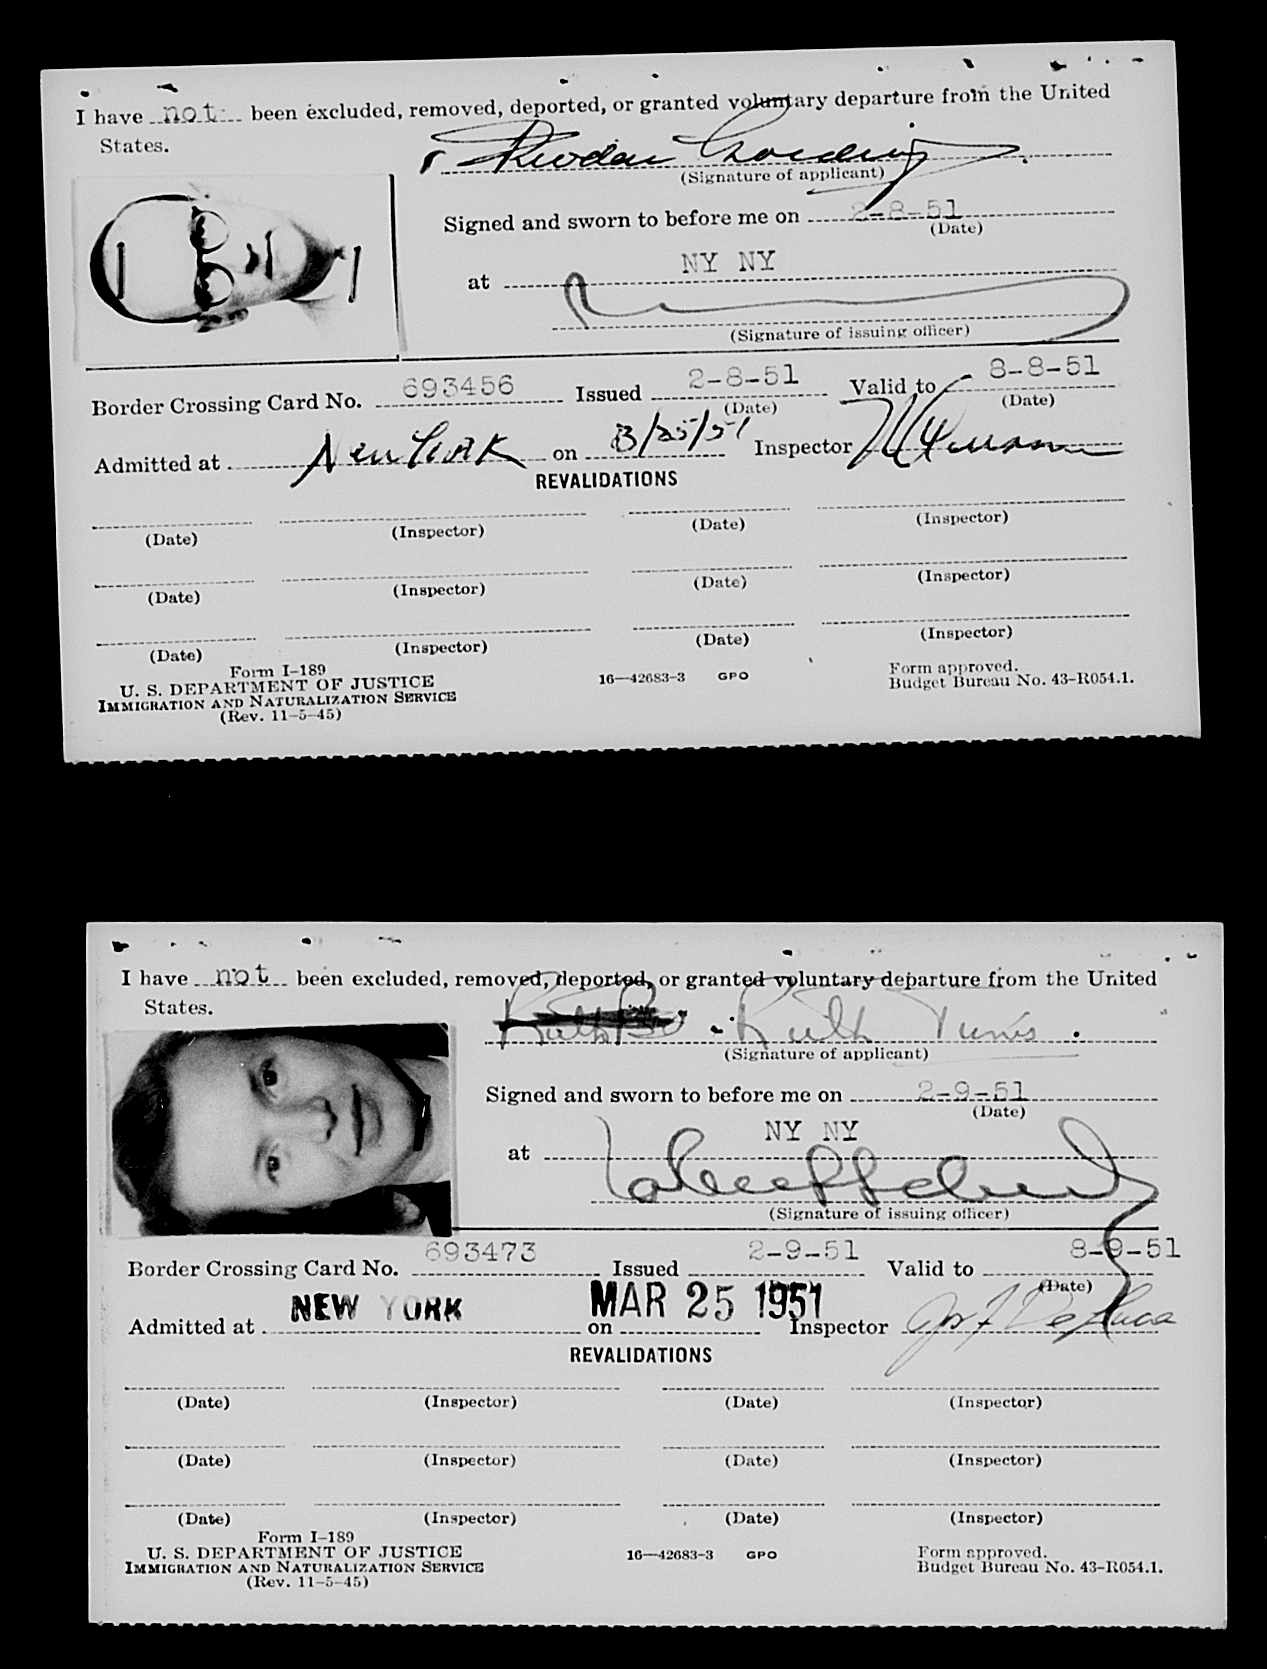 I have not been excluded, removed, deported, or granted voluntary departure from the United
States.
(Signature of applicant)
Signed and sworn to before me on 2-8-51
(Date)
at NY NY
(Signature of issuing officer)
Border Crossing Card No. 693456 Issued 2-8-51 Valid to 8-8-51
(Date) (Date)
Admitted at New York on 3/25/51 Inspector
REVALIDATIONS
(Date) (Inspector) (Date) (Inspector)
(Date) (Inspector) (Date) (Inspector)
(Date) (Inspector) (Date) (Inspector)
Form I-189
U. S. DEPARTMENT OF JUSTICE
IMMIGRATION AND NATURALIZATION SERVICE
(Rev. 11-5-45)
16—42683-3 GPO
Form approved.
Budget Bureau No. 43-R054.1.
I have not been excluded, removed, deported, or granted voluntary departure from the United
States.
Ruth Tunis
(Signature of applicant)
Signed and sworn to before me on 2-9-51
(Date)
at NY NY
(Signature of issuing officer)
Border Crossing Card No. 693473 Issued 2-9-51 Valid to 8-9-51
(Date)
Admitted at NEW YORK on MAR 25 1951 Inspector
REVALIDATIONS
(Date) (Inspector) (Date) (Inspector)
(Date) (Inspector) (Date) (Inspector)
(Date) (Inspector) (Date) (Inspector)
Form I-189
U. S. DEPARTMENT OF JUSTICE
IMMIGRATION AND NATURALIZATION SERVICE
(Rev. 11-5-45)
16—42683-3 GPO
Form approved.
Budget Bureau No. 43-R054.1.